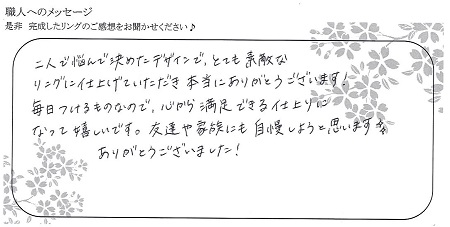 職人へのメッセージ
是非 完成したリングのご感想をお聞かせください♪
二人で悩んで決めたデザインで、とても素敵な
リングに仕上げていただき本当にありがとうございます!
毎日つけるものなので、心から満足できる仕上りに
なって嬉しいです。友達や家族にも自慢しようと思います☆
ありがとうございました!